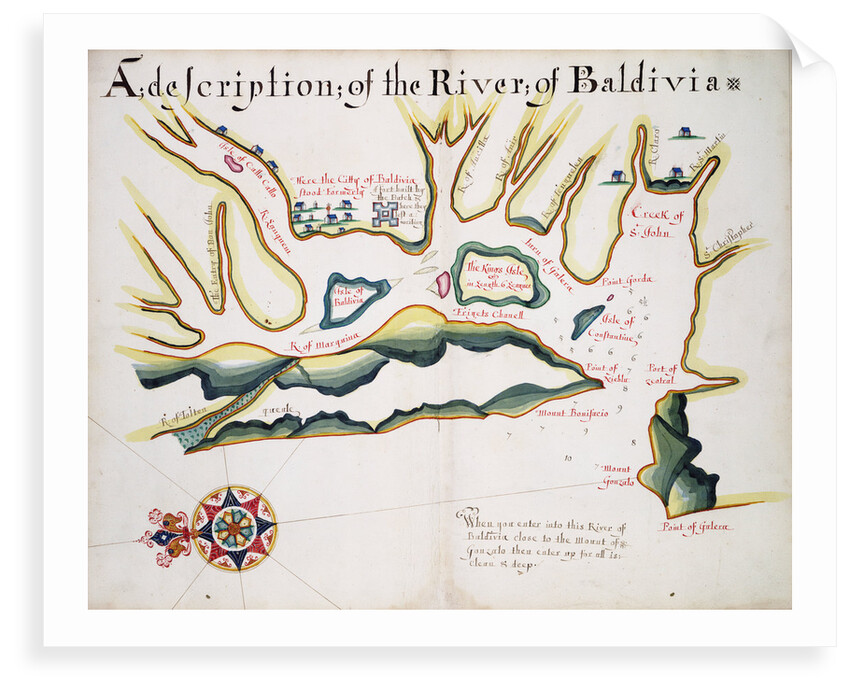 A; description; of the River; of Baldivia
Isle of Callo Callo
Were the Citty of Baldivia
stood formerly
A fort built by
the Dutch
here they
The Entry of Don John
Isle of
Baldivia
R. of Marquina
The Kings Isle
in Length 6 Leagues
Turn of Galera
Creek of
St. John
R. Claro
R. St. Martin
St. Christopher
Point Gorda
Isle of
Constantine
6
6
6
6
6
6
7
Point of
Niebla
Port of
Mount Bonifacio
9
8
9
7
7
7
10
7
Mount
Gonzalo
Point of Galera
R. of Tolten
queule
When you enter into this River of
Baldivia close to the Mount of
Gonzalo then enter up for all is
clean & deep.